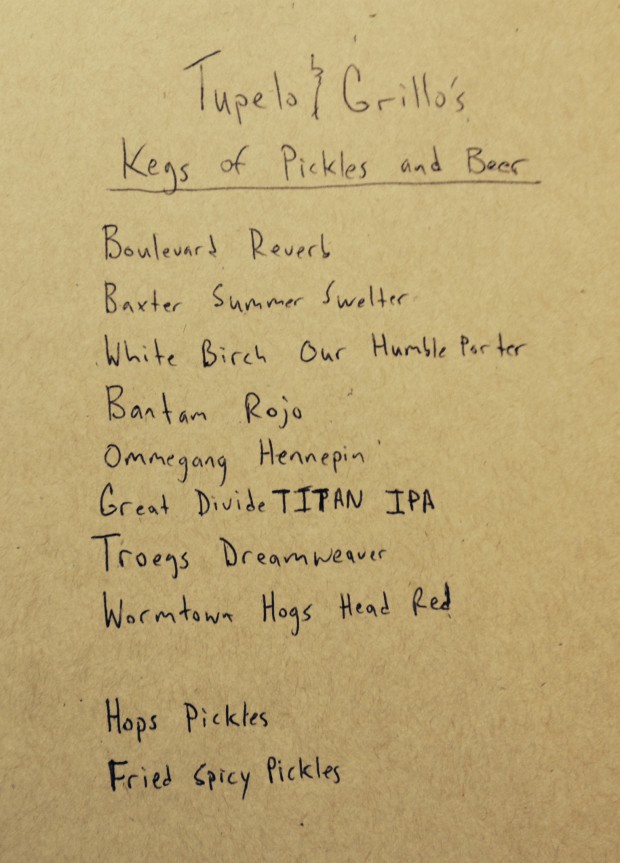 Tupelo & Grillo's
Kegs of Pickles and Beer
Boulevard Reverb
Baxter Summer Swelter
White Birch Our Humble Porter
Bantam Rojo
Ommegang Hennepin
Great Divide TITAN IPA
Troegs Dreamweaver
Wormtown Hogs Head Red
Hops Pickles
Fried Spicy Pickles